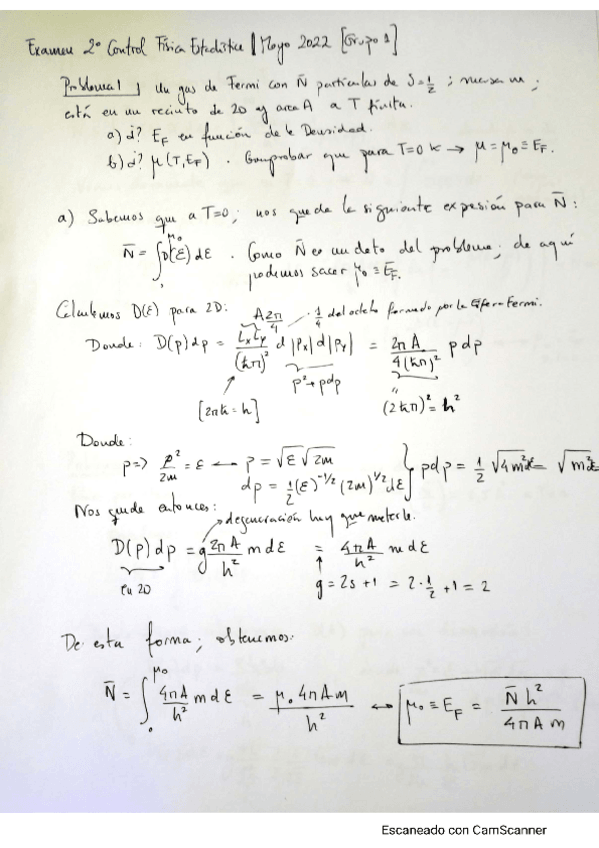 Examen 2º Control Física Estadística | Mayo 2022 [Grupo 1]
Problema 1 | Un gas de Fermi con N̄ partículas de S=½ ; masa m ;
está en un recinto de 2D y area A a T finita.
a) d? E_F en función de la Densidad.
b) d? μ(T,E_F). Comprobar que para T=0 K → μ = μ₀ ≡ E_F.
a) Sabemos que a T=0; nos queda la siguiente expresión para N̄:
N̄ = ∫₀^μ₀ D(ε) dε . Como N̄ es un dato del problema; de aquí
podemos sacar μ₀ ≡ E_F.
Calculemos D(ε) para 2D: A2π/4 · ¼ del octete formado por la Esfera-Fermi.
Donde: D(p)dp = LxLy/(ħπ)² d|Px|d|Py| = 2πA/4(ħπ)² pdp
p² → pdp
[2πħ = h] (2ħπ)² = h²
Donde:
p => p²/2m = ε ← p = √ε √2m
dp = ½(ε)^-1/2 (2m)^1/2 dε } pdp = ½ √4m² dε = √m² dε
Nos queda entonces:
→ degeneración hay que meterla.
D(p)dp = g 2πA/h² m dε = 4πA/h² m dε
en 2D g = 2s+1 = 2·½+1 = 2
De esta forma; obtenemos:
N̄ = ∫₀^μ₀ 4πA/h² m dε = μ₀ 4πAm/h² ↔ μ₀ ≡ E_F = N̄h²/4πAm
Escaneado con CamScanner